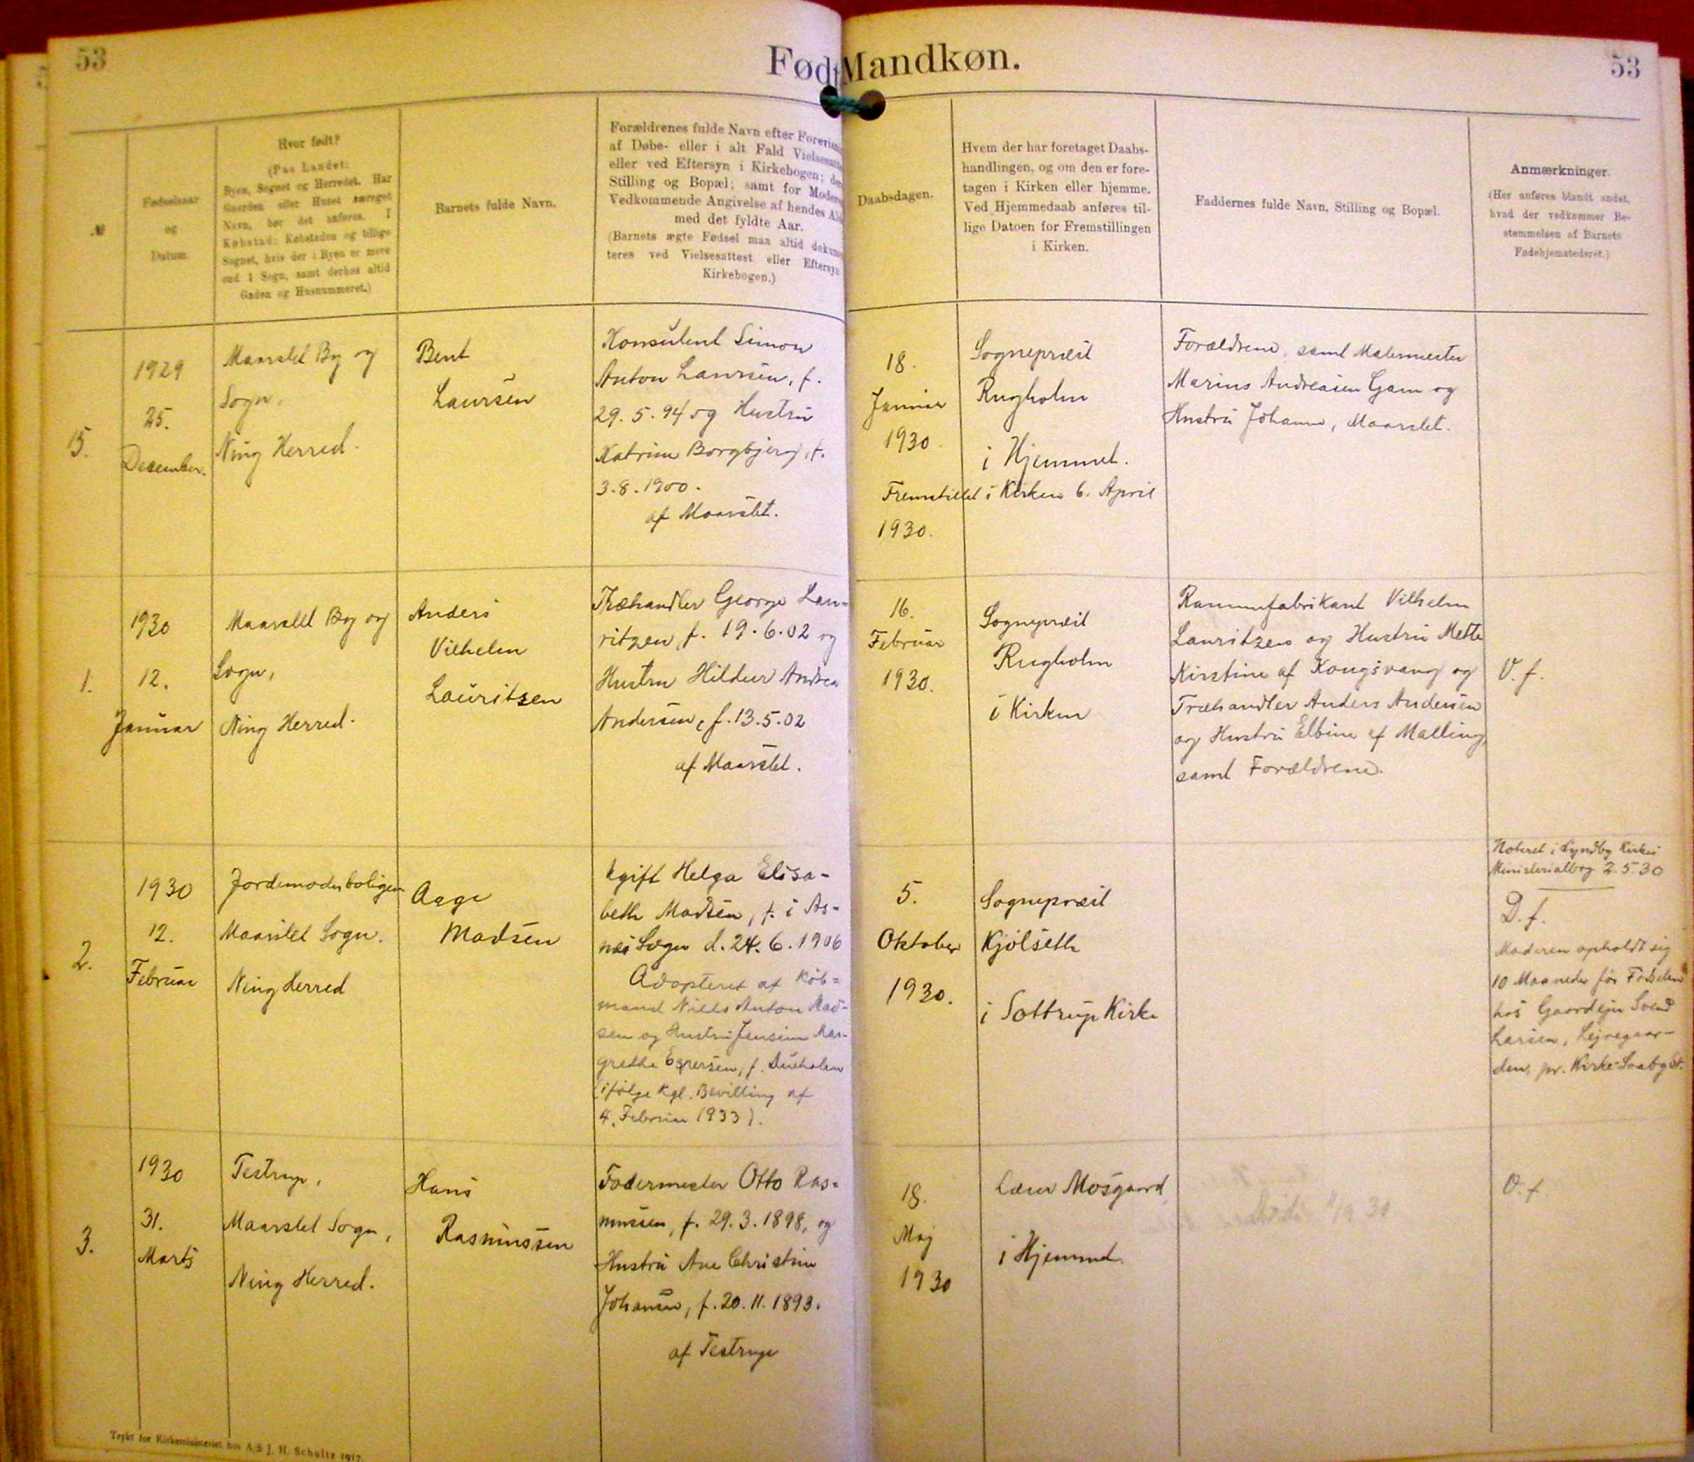 53
Født Mandkøn.
53
№
Fødselsaar
og
Datum.
Hvor født?
(Paa Landet:
Byen, Sognet og Herredet. Har
Gaarden eller Huset særeget
Navn, bør det anføres. I
Købstad: Købstaden og tillige
Sognet, hvis der i Byen er mere
end 1 Sogn, samt derhos altid
Gaden og Husnummeret.)
Barnets fulde Navn.
Forældrenes fulde Navn efter
af Døbe- eller i alt Fald
eller ved Eftersyn i Kirkebogen;
Stilling og Bopæl; samt for
Vedkommende Angivelse af hendes
med det fyldte Aar.
(Barnets ægte Fødsel maa altid
teres ved Vielsesattest eller Eftersyn
Kirkebogen.)
Daabsdagen.
Hvem der har foretaget Daabs-
handlingen, og om den er fore-
tagen i Kirken eller hjemme.
Ved Hjemmedaab anføres til-
lige Datoen for Fremstillingen
i Kirken.
Faddernes fulde Navn, Stilling og Bopæl.
Anmærkninger.
(Her anføres blandt andet,
hvad der vedkommer Be-
stemmelsen af Barnets
Fødehjemstedsret.)
15.
1929
25.
December.
Maarslet By og
Sogn,
Ning Herred.
Bent
Laursen
Konsulent Simon
Anton Laursen, f.
29.5.94 og Hustru
Katrine Borgbjerg, f.
3.8.1900.
af Maarslet.
18.
Januar
1930.
Sognepræst
Rugholm
i Hjemmet.
Fremstillet i Kirken 6. April
1930.
Forældrene, samt Malermester
Marius Andreasen Gam og
Hustru Johanne, Maarslet.
1.
1930
12.
Januar
Maarslet By og
Sogn,
Ning Herred.
Anders
Vilhelm
Lauritsen
Træhandler George Lau-
ritzen, f. 19.6.02 og
Hustru Hildur Andrea
Andersen, f. 13.5.02
af Maarslet.
16.
Februar
1930.
Sognepræst
Rugholm
i Kirken
Rammefabrikant Vilhelm
Lauritzen og Hustru Mette
Kirstine af Kongsvang og
Træhandler Anders Andersen
og Hustru Elbine af Malling,
samt Forældrene.
V. f.
2.
1930
12.
Februar
Jordemoderboligen
Maarslet Sogn.
Ning Herred
Aage
Madsen
Ugift Helga Elisa-
beth Madsen, f. i As-
næs Sogn d. 24.6.1906
Adopteret af Køb-
mand Niels Anton Mad-
sen og Hustru Jensine Mar-
grethe Espersen, f. Dueholm
(ifølge Kgl. Bevilling af
4. Februar 1933).
5.
Oktober
1930.
Sognepræst
Kjølseth
i Sottrup Kirke
Noteret i Lyndby Kirkes
Ministerialbog 2.5.30
D. f.
Moderen opholdt sig
10 Maaneder før Fødselen
hos Gaardejer Svend
Larsen, Lejregaar-
den, pr. Kirke-Saaby St.
3.
1930
31.
Marts
Testrup,
Maarslet Sogn,
Ning Herred.
Hans
Rasmussen
Fodermester Otto Ras-
mussen, f. 29.3.1898, og
Hustru Ane Christine
Johansen, f. 20.11.1893.
af Testrup
18.
Maj
1930
Lærer Mosgaard
i Hjemmet
V. f.
Trykt for Kirkeministeriet hos A/S J. H. Schultz 1917.